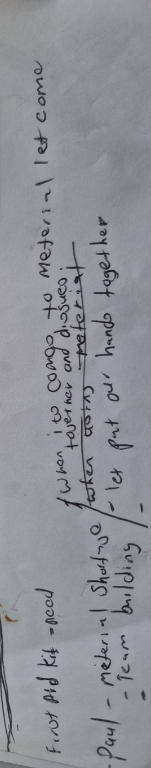 First Aid Kit = need
when it comes to Meterial let come
together and disques;
when using meterial
Paul - meterial shortage / - let put our hands together
- Team building -
-